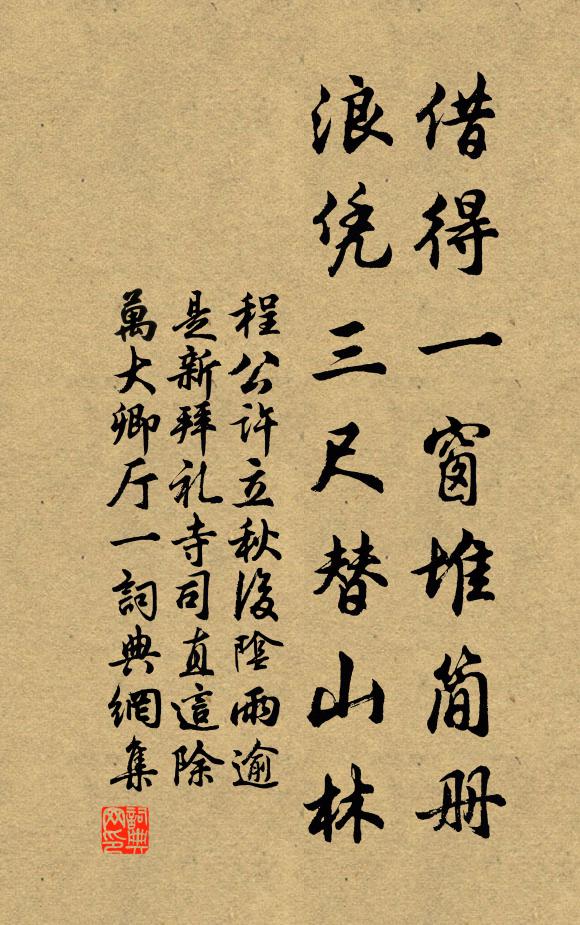 借得一窗堆简册
浪凭三尺替山林
程公许立秋後陰雨逾
是新拜礼寺司直這除
萬大卿厅一詞典網集
詞典网印